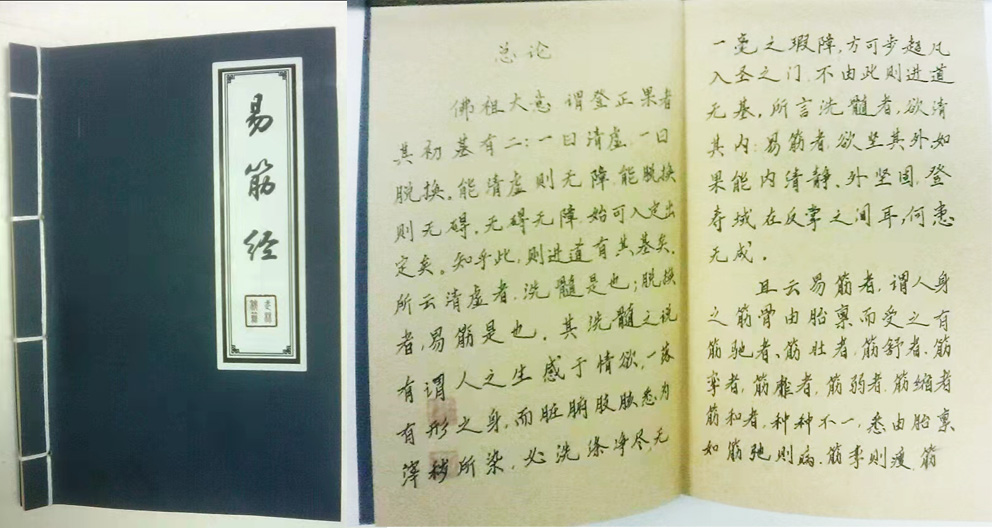 易筋经
总论
佛祖大意 谓登正果者
其初基有二:一曰清虚,一曰
脱换。能清虚则无障,能脱换
则无碍。无碍无障,始可入定出
定矣。知乎此,则进道有其基矣。
所云清虚者,洗髓是也;脱换
者,易筋是也。其洗髓之说
有谓人之生感于情欲,一落
有形之身,而脏腑肢脉悉为
滓秽所染,必洗涤净尽,无
一毫之瑕障,方可步超凡
入圣之门,不由此则进道
无基。所言洗髓者,欲清
其内;易筋者,欲坚其外如
果能内清静、外坚固,登
寿域在反掌之间耳,何患
无成。
且云易筋者,谓人身
之筋骨由胎禀而受之有
筋驰者、筋壮者,筋舒者,筋
者,筋靡者,筋弱者,筋缩者
筋和者,种种不一,悉由胎禀
如筋弛则病,筋则瘦,筋